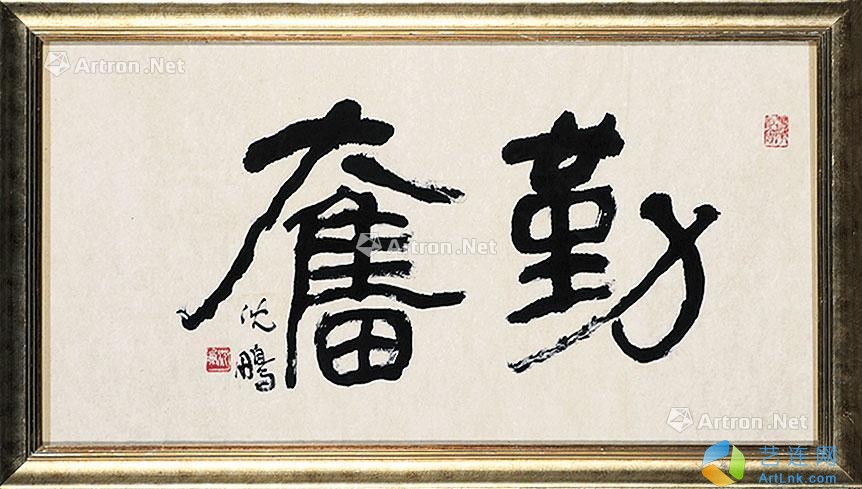 勤奮
沈鵬
Artron.Net
Artron.Net
Artron.Net
艺连网
ArtLnk.com